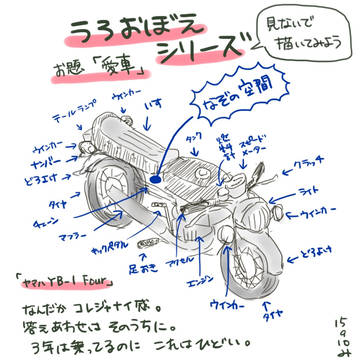 うろおぼえ
シリーズ
見ないで
描いてみよう
お題「愛車」
なぞの空間
ウインカー
テールランプ
いす
タンク
スピード
メーター
ウインカー
ナンバー
どろよけ
タイヤ
チェーン
マフラー
キックペダル
足おき
アクセル
エンジン
クラッチ
ライト
ウインカー
どろよけ
ウインカー
タイヤ
「ヤマハYB-1 Four」
なんだか コレジャナイ感。
答えあわせは そのうちに。
3年は乗ってるのに これはひどい。
15
9
10